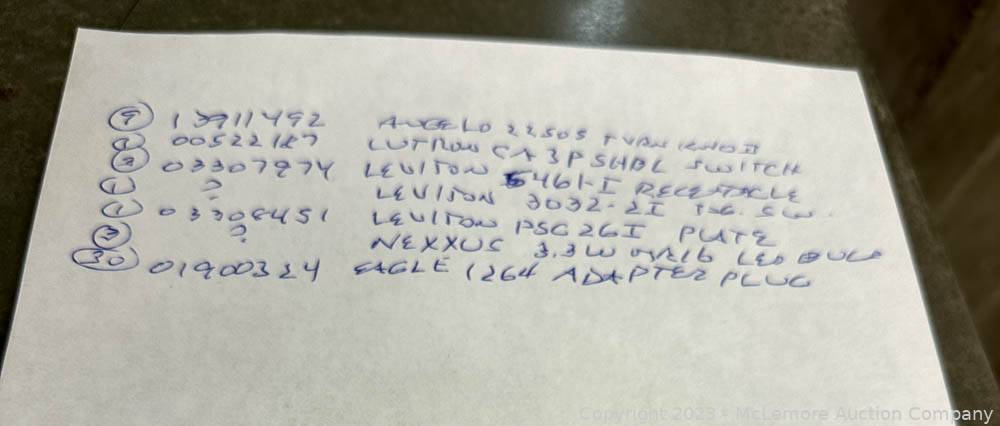 (9) 13911492 ANGELO 22505 TURN KNOB
(1) 00522187 LUTRON CA3PSHDL SWITCH
(2) 03307974 LEVITON 5461-I RECEPTACLE
(1) ? LEVITON 3032-2I TOG. SW.
(1) 03308451 LEVITON PSC26I PLATE
(3) ? NEXXUS 3.3W MR16 LED BULB
(30) 01900324 EAGLE 1264 ADAPTER PLUG
Copyright 2023 • McLemore Auction Company